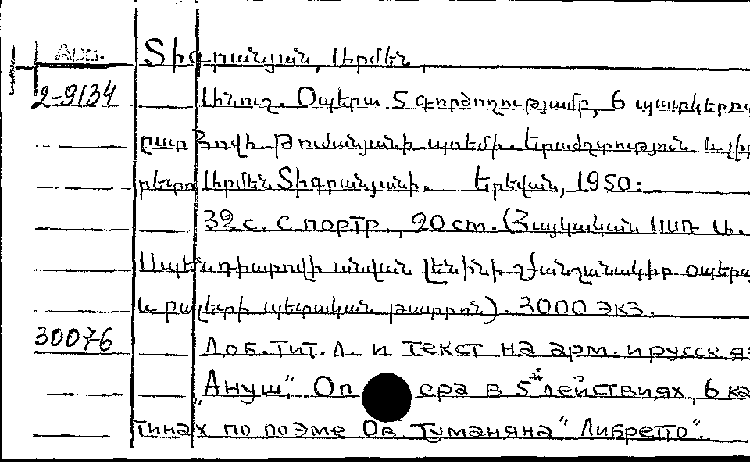 Арм. Տիգրանյան, Արմեն.
2-9134 Անուշ. Օպերա 5 գործողությամբ, 6 պատկերով
ըստ Հովհ. Թումանյանի պոեմի. Երաժշտություն և լիբ
րետո Արմեն Տիգրանյանի. Երեվան, 1950:
32 с. с портр., 20 cm. (Հայկական ՍՍՌ Ա.
Սպենդիարովի անվան Լենինի շքանշանակիր օպերայի
և բալետի պետական թատրոն). 3000 экз.
30076 Доб. тит. л. и текст на арм. и русск яз
"Ануш". Опера в 5 действиях, 6 ка
тинах по поэме Ов. Туманяна" Либретто".